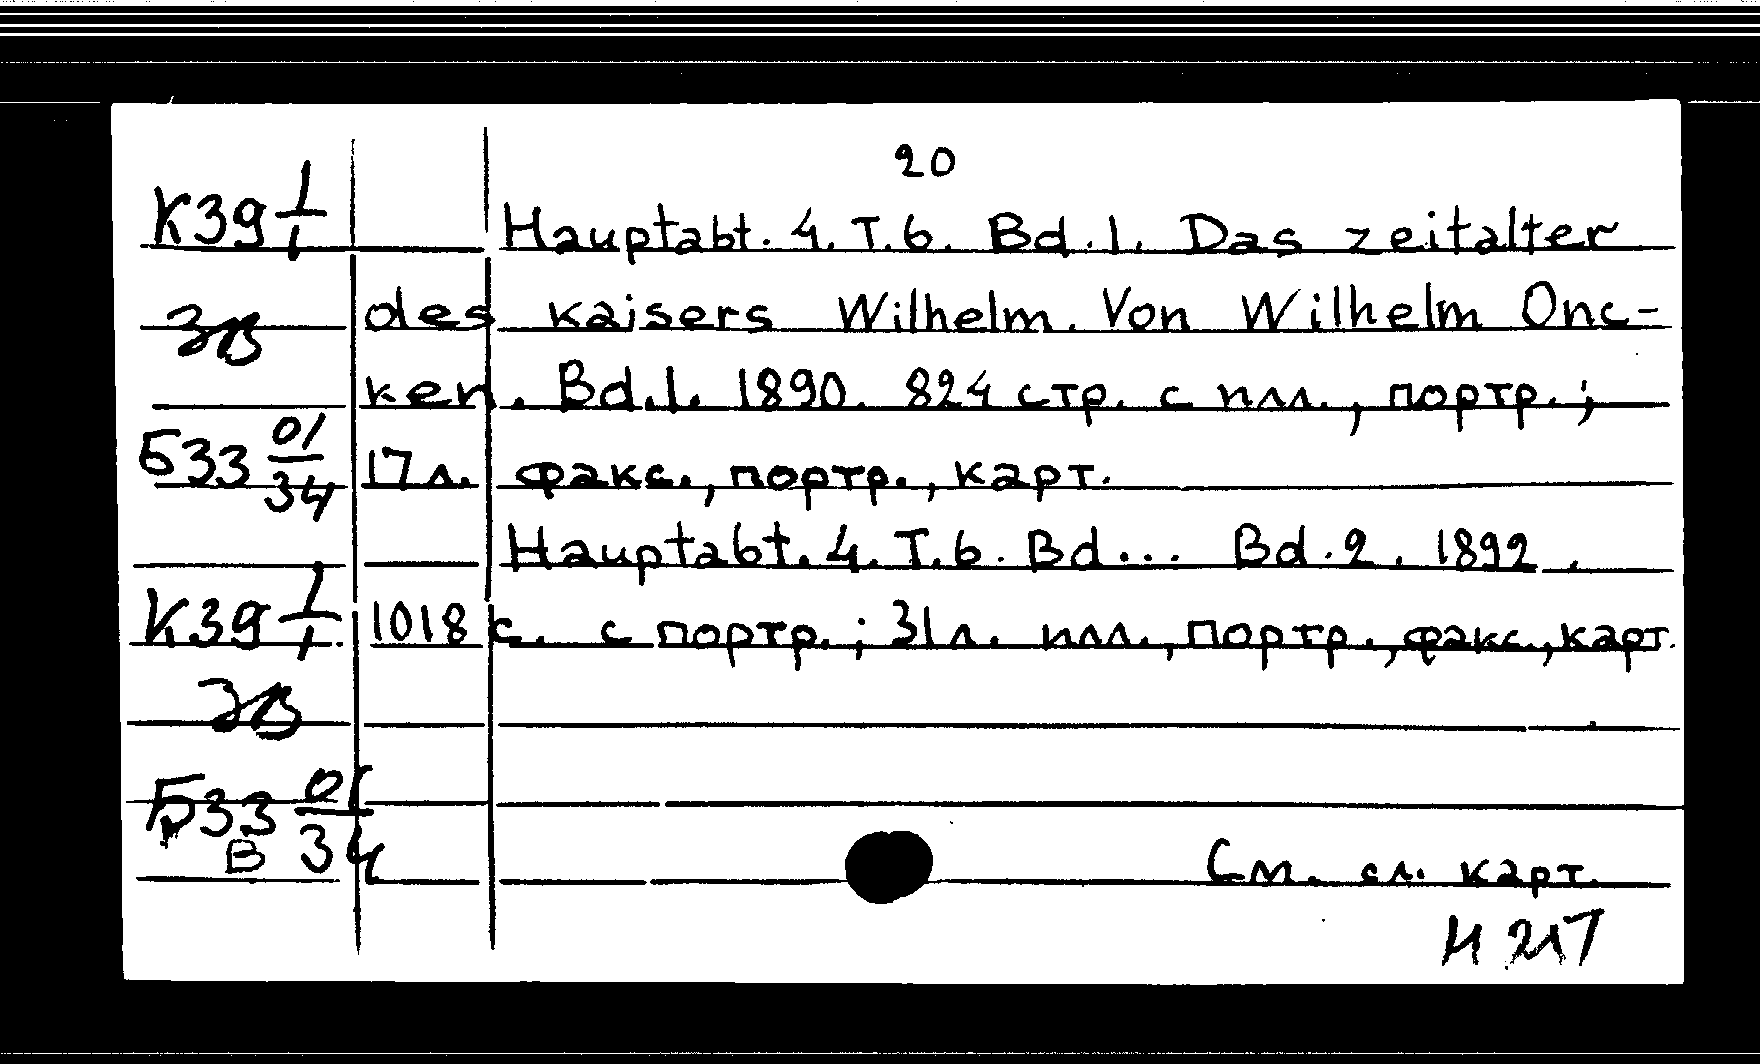 20
К39 1/1
Hauptabt. 4. T. 6. Bd. 1. Das zeitalter
ЗВ
des kaisers Wilhelm. Von Wilhelm Onc-
ken. Bd. 1. 1890. 824 стр. с илл., портр.;
Б33 01/34
17 л. факс., портр., карт.
Hauptabt. 4. T. 6. Bd... Bd. 2. 1892.
К39 1/1
1018 с. с портр.; 31 л. илл., портр., факс., карт.
ЗВ
Б33 01/34
В
См. сл. карт.